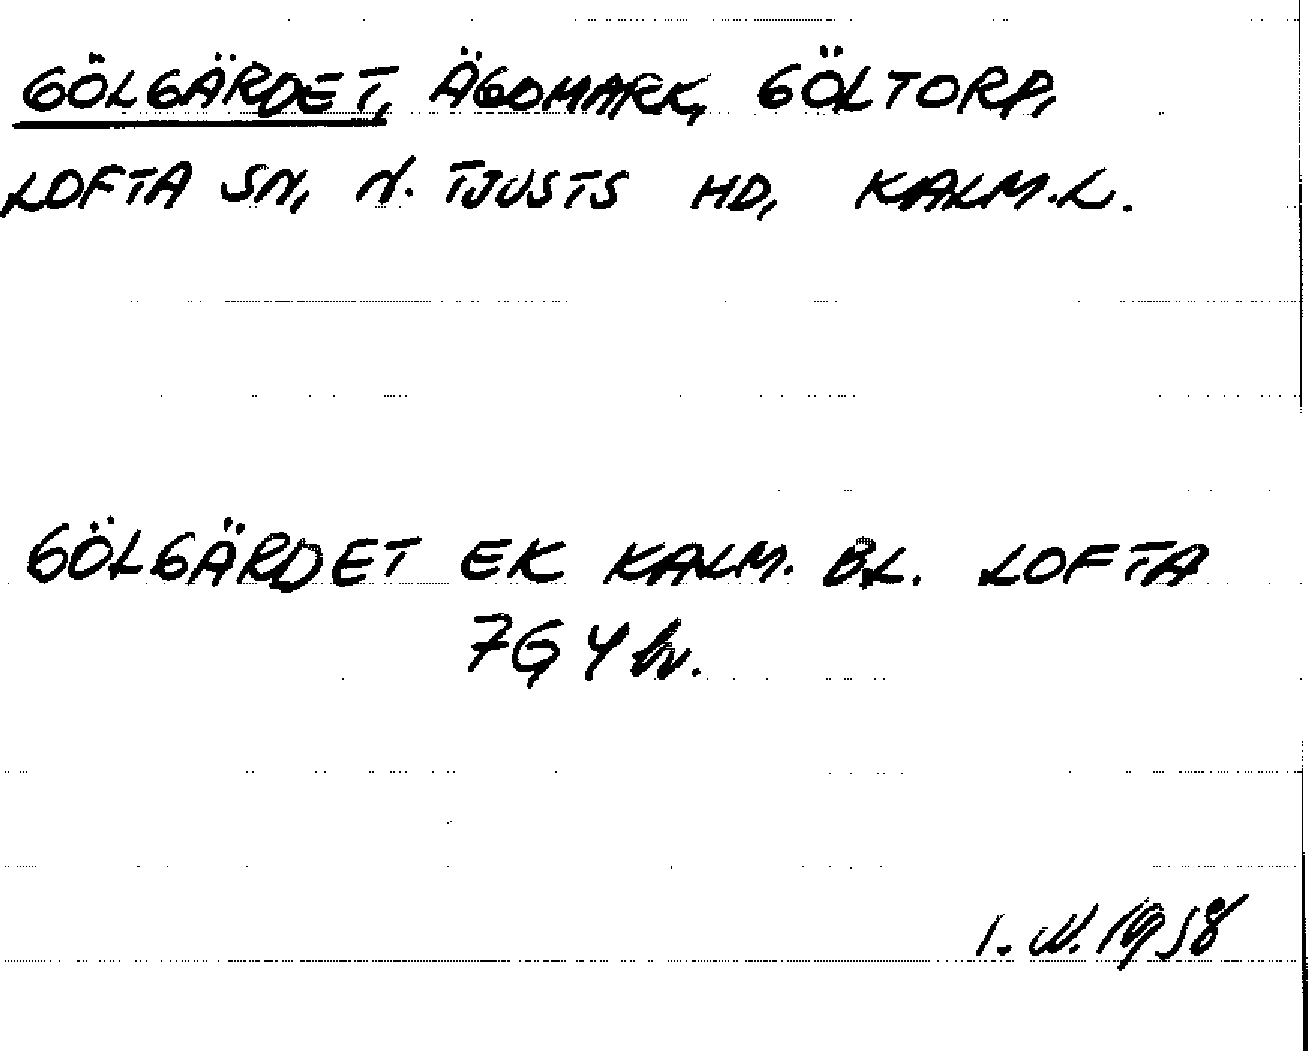 GÖLGÄRDET, ÄGOMARK, GÖLTORP,
LOFTA SN, N. TJUSTS HD, KALM.L.
GÖLGÄRDET EK KALM. BL. LOFTA
7G 4 bv.
I. N. 1958